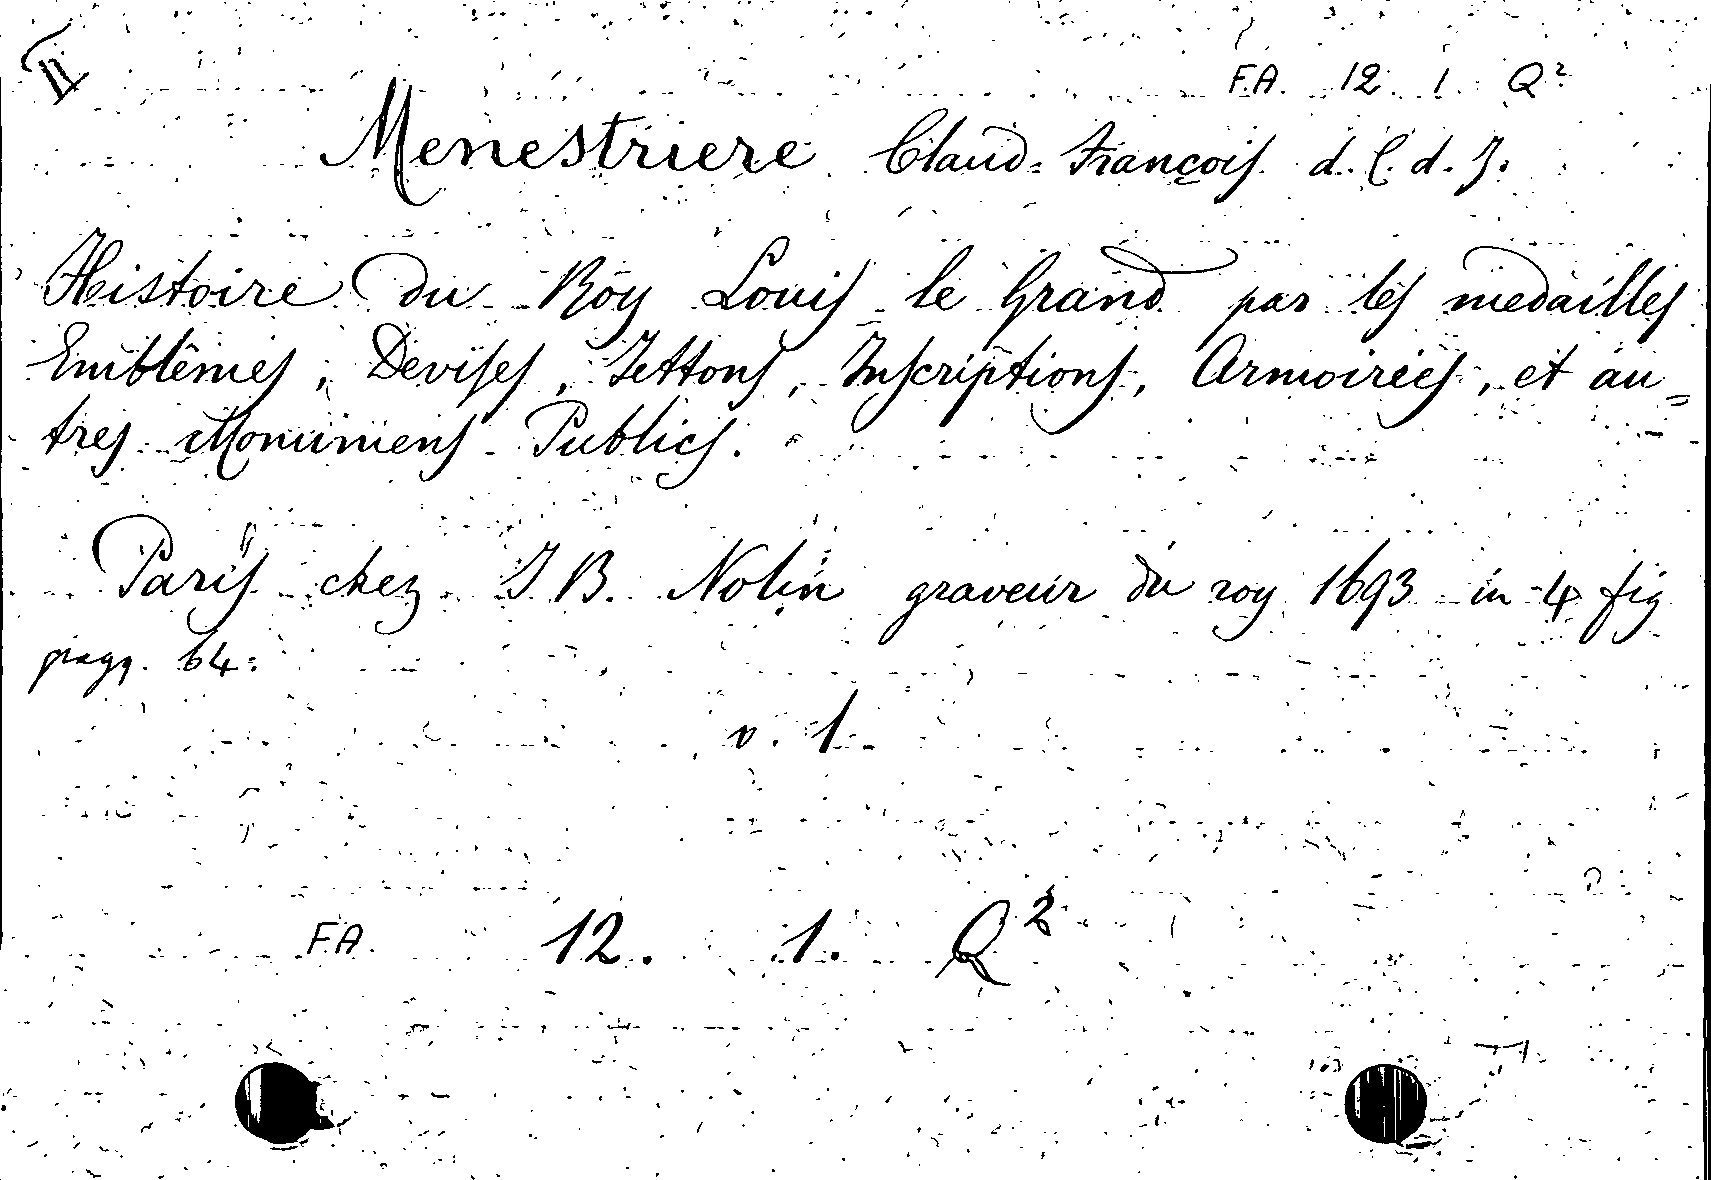 F.A. 12. 1. Q²
Menestriere Claud=François d. C. d. J.
Histoire du Roy Louis le Grand par les medailles
Emblêmes, Devises, Jettons, Inscriptions, Armoiries, et au=
tres Monumens Publics.
Paris chez J B. Nolin graveur du roy 1693 in-4 fig
pagg. 64.
v. 1.
F.A. 12. 1. Q²